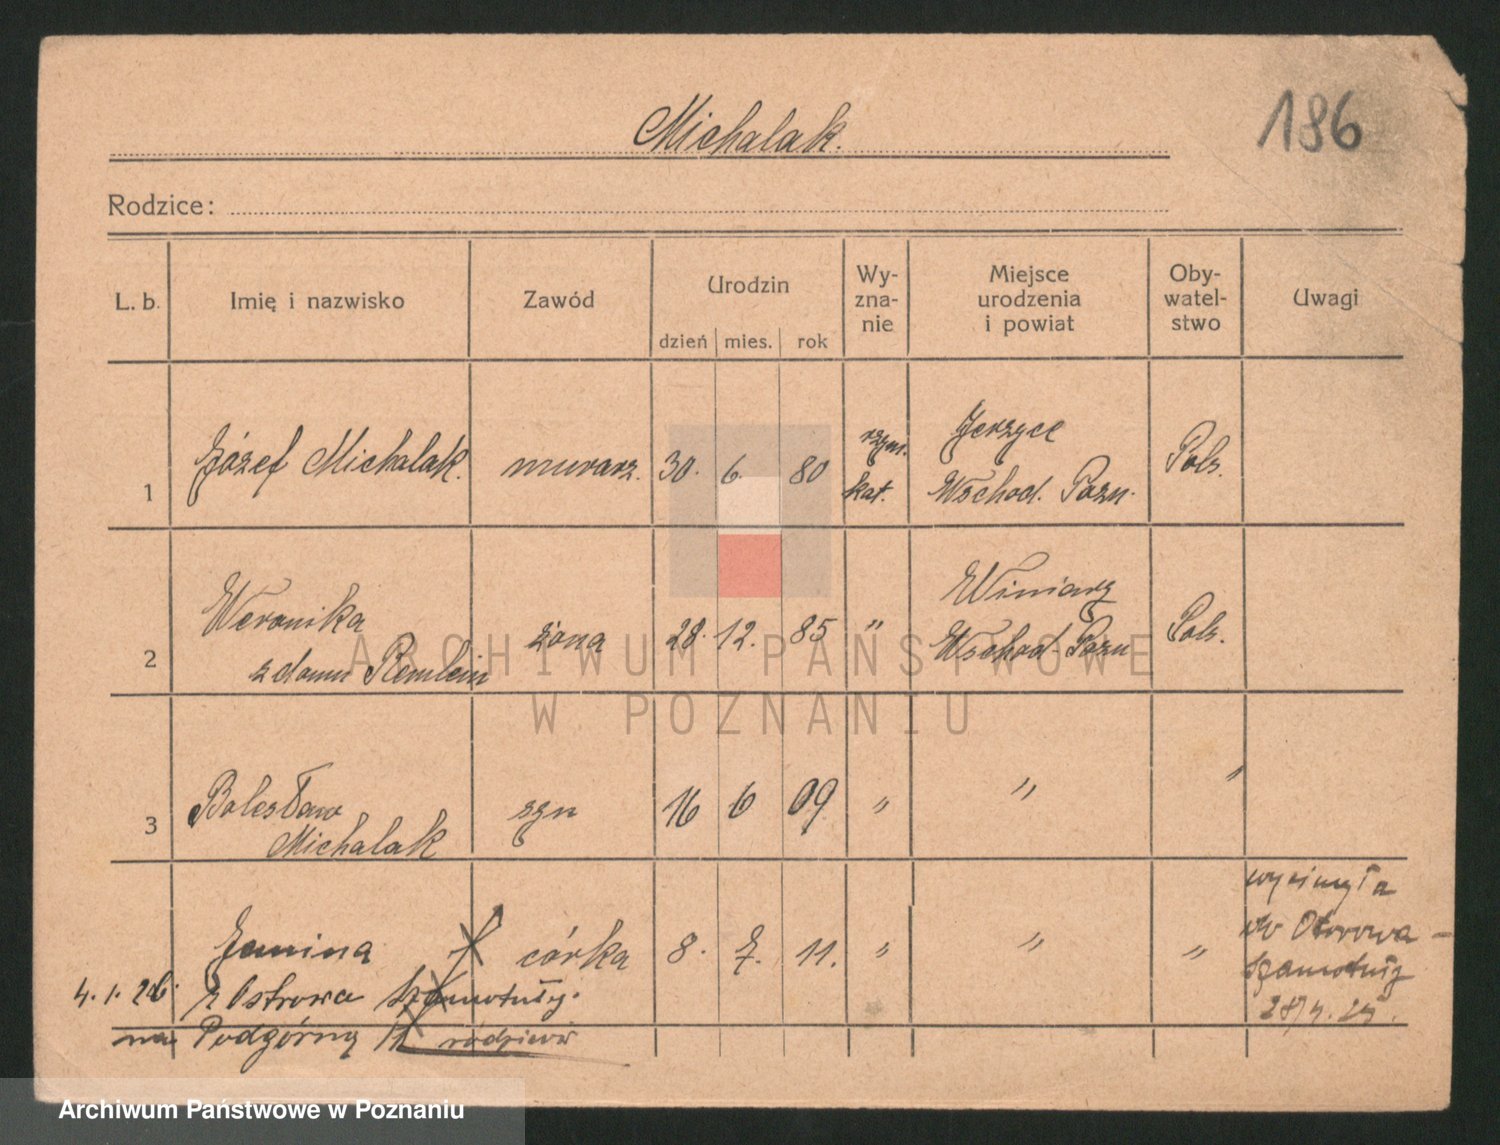 Michalak.
186
Rodzice:
L. b. Imię i nazwisko Zawód Urodzin dzień mies. rok Wy-zna-nie Miejsce urodzenia i powiat Oby-watel-stwo Uwagi
1 Józef Michalak. murarz. 30. 6. 80 rzym. kat. Jerzyce Wschod. Pozn. Pols.
2 Weronika z domu Remlein żona 28. 12. 85 " Winiary Wschod. Pozn Pols.
3 Bolesław Michalak syn 16 6 09 " " "
Janina córka 8. 7. 11. " " " do Otorowa - Szamotuły
4. 1. 26. z Ostrowa Szamotuły.
na Podgórną rodziców
ARCHIWUM PAŃSTWOWE
W POZNANIU
Archiwum Państwowe w Poznaniu